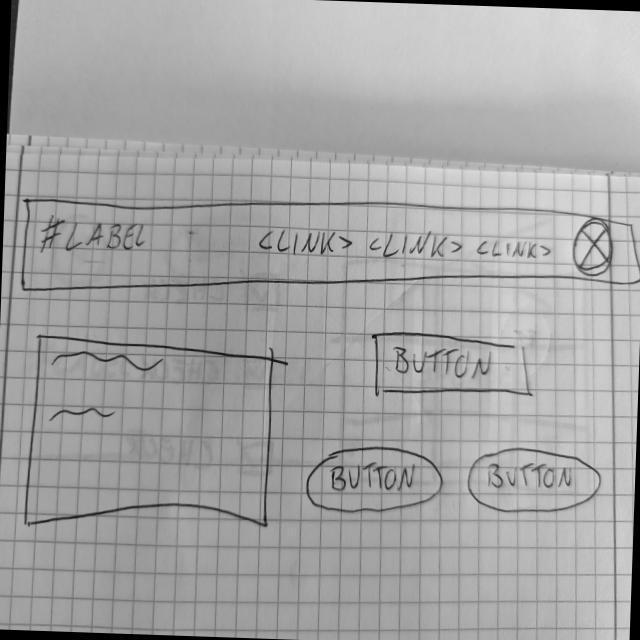 #LABEL <LINK> <LINK> <LINK>
BUTTON
BUTTON BUTTON